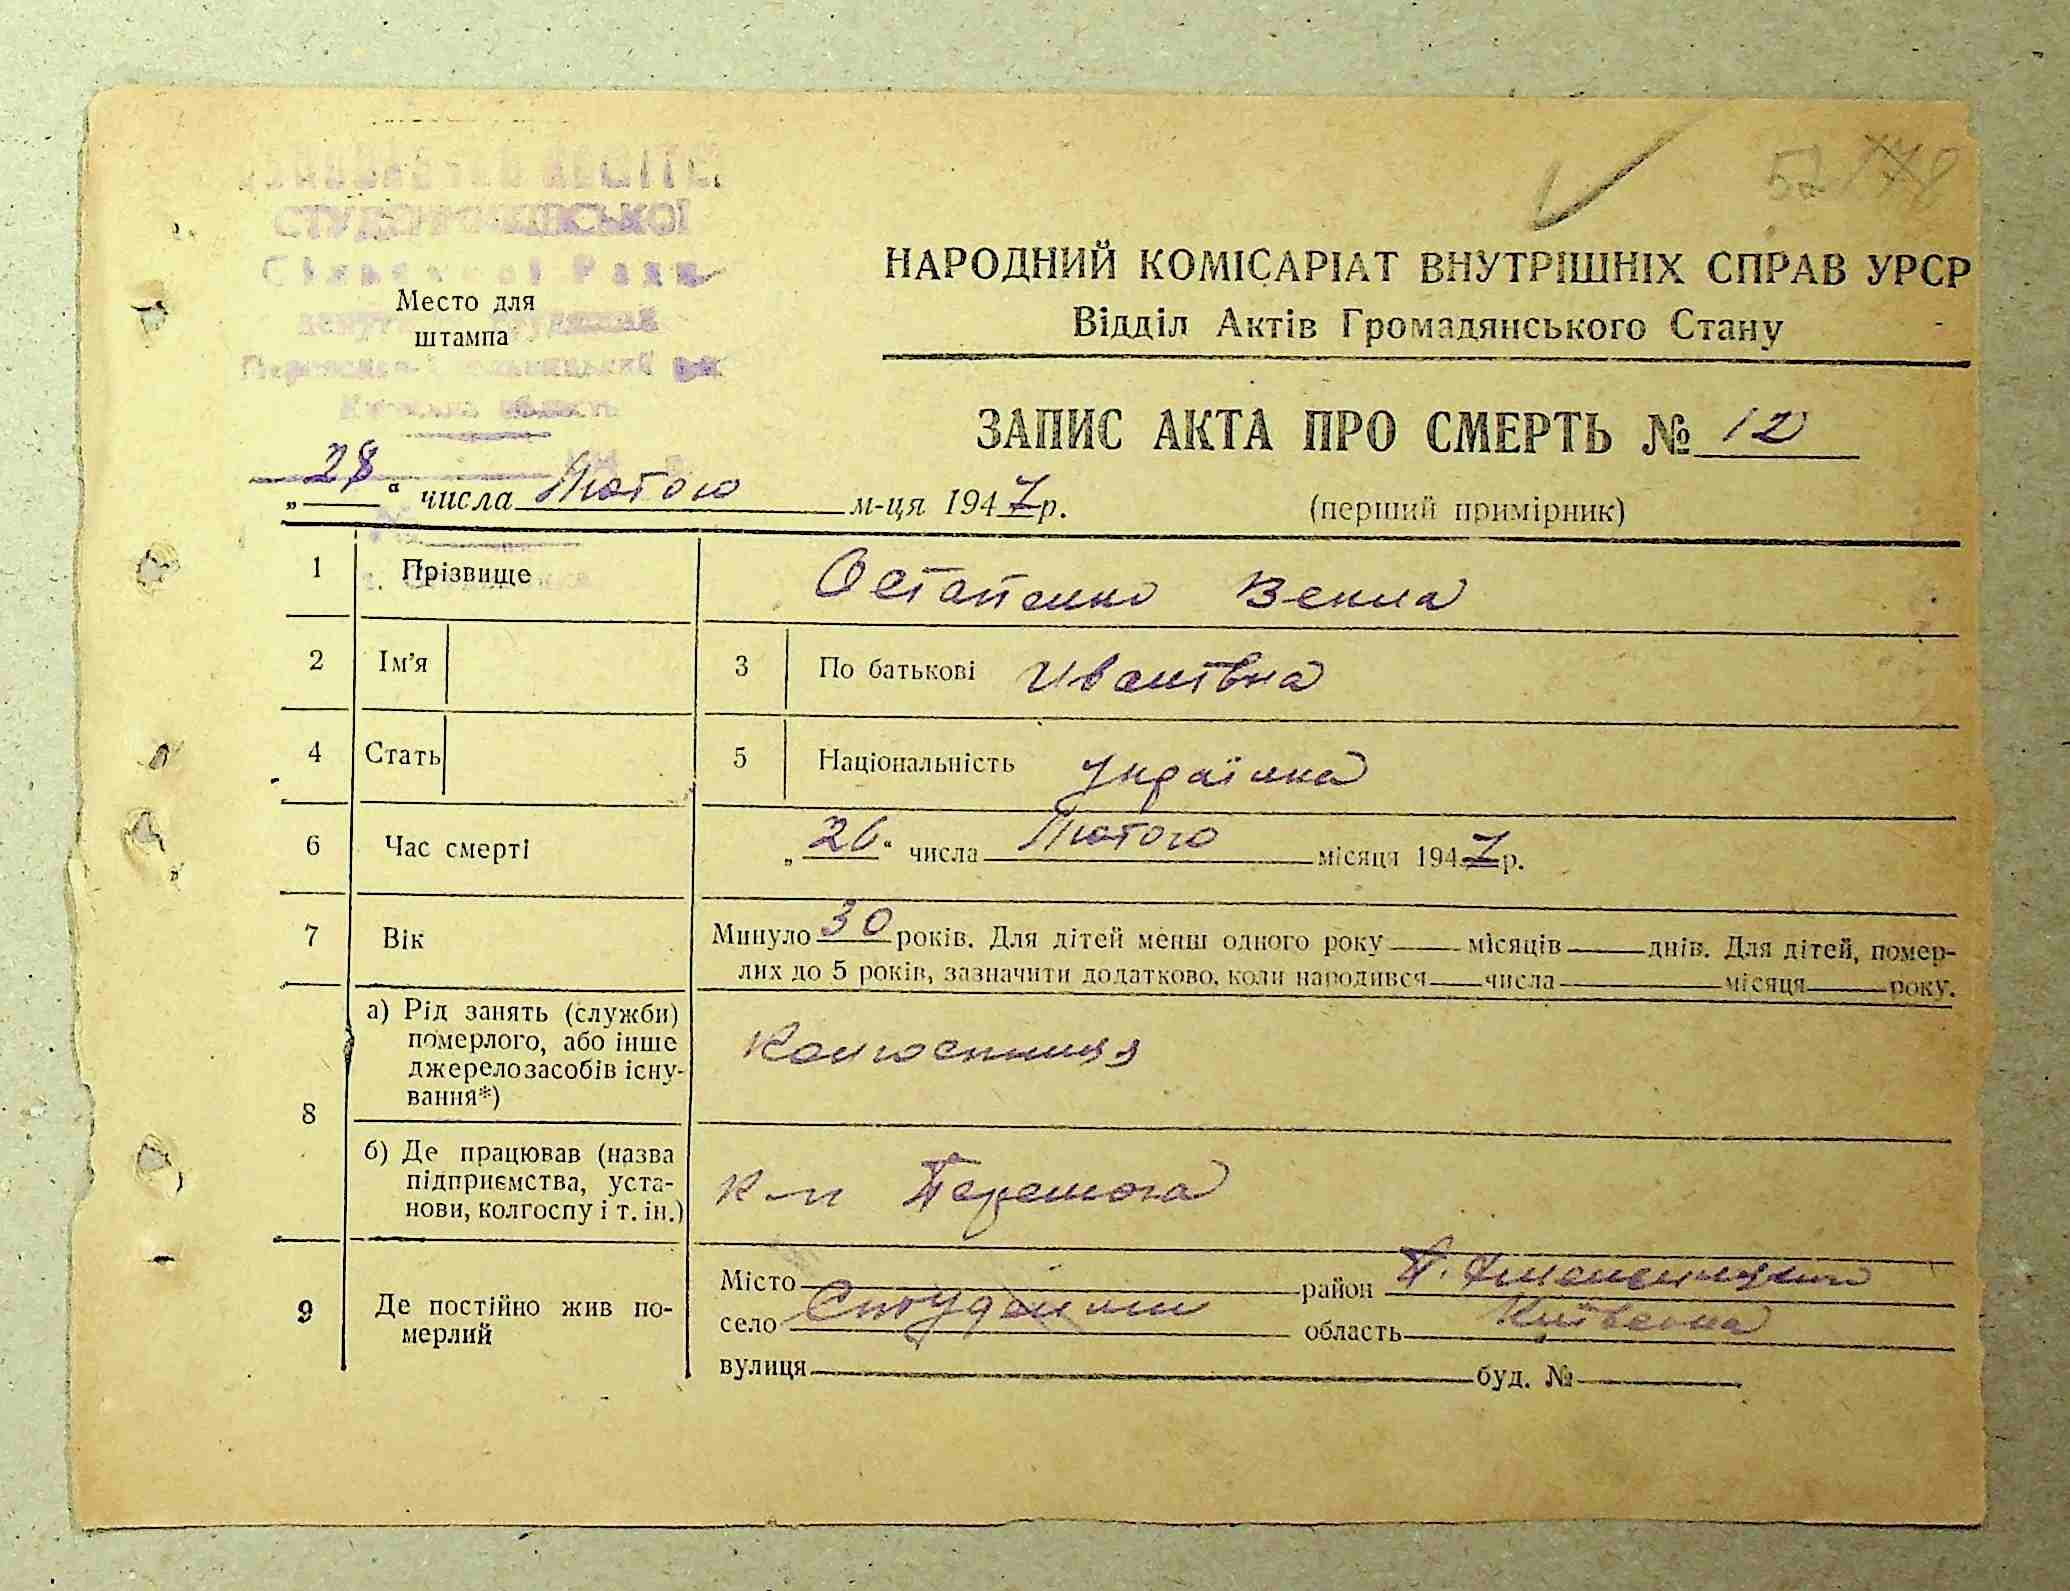 СТУДЕНИКІВСЬКОЇ
Сільської Ради
Место для
штампа
Київська область
НАРОДНИЙ КОМІСАРІАТ ВНУТРІШНІХ СПРАВ УРСР
Відділ Актів Громадянського Стану
ЗАПИС АКТА ПРО СМЕРТЬ № 12
„28“ числа Лютого м-ця 1947 р.
(перший примірник)
1 Прізвище Остапенко Векла
2 Ім’я 3 По батькові Ивантвна
4 Стать 5 Національність Українка
6 Час смерті „26“ числа Лютого місяця 1947 р.
7 Вік Минуло 30 років. Для дітей менш одного року місяців днів. Для дітей, помер-
лих до 5 років, зазначити додатково, коли народився числа місяця року.
8 а) Рід занять (служби)
померлого, або інше
джерело засобів існу-
вання*)
Колгоспниця
б) Де працював (назва
підприємства, уста-
нови, колгоспу і т. ін.)
к-п Перемога
9 Де постійно жив по-
мерлий
Місто район П. Хмельницкий
село Студеники область Київська
вулиця буд. №